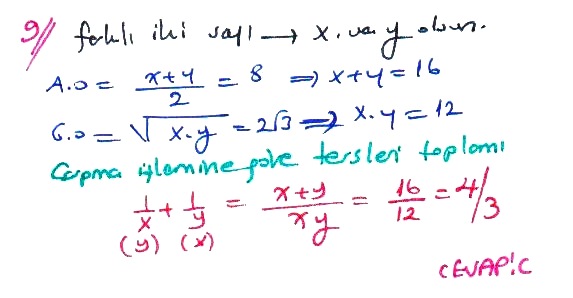 9// farklı iki sayı → x. ve y olsun.
A.O = x+y/2 = 8 ⇒ x+y = 16
G.O = √x.y = 2√3 ⇒ x.y = 12
Çarpma işlemine göre tersleri toplamı
1/x + 1/y = x+y/xy = 16/12 = 4/3
(y) (x)
CEVAP:C